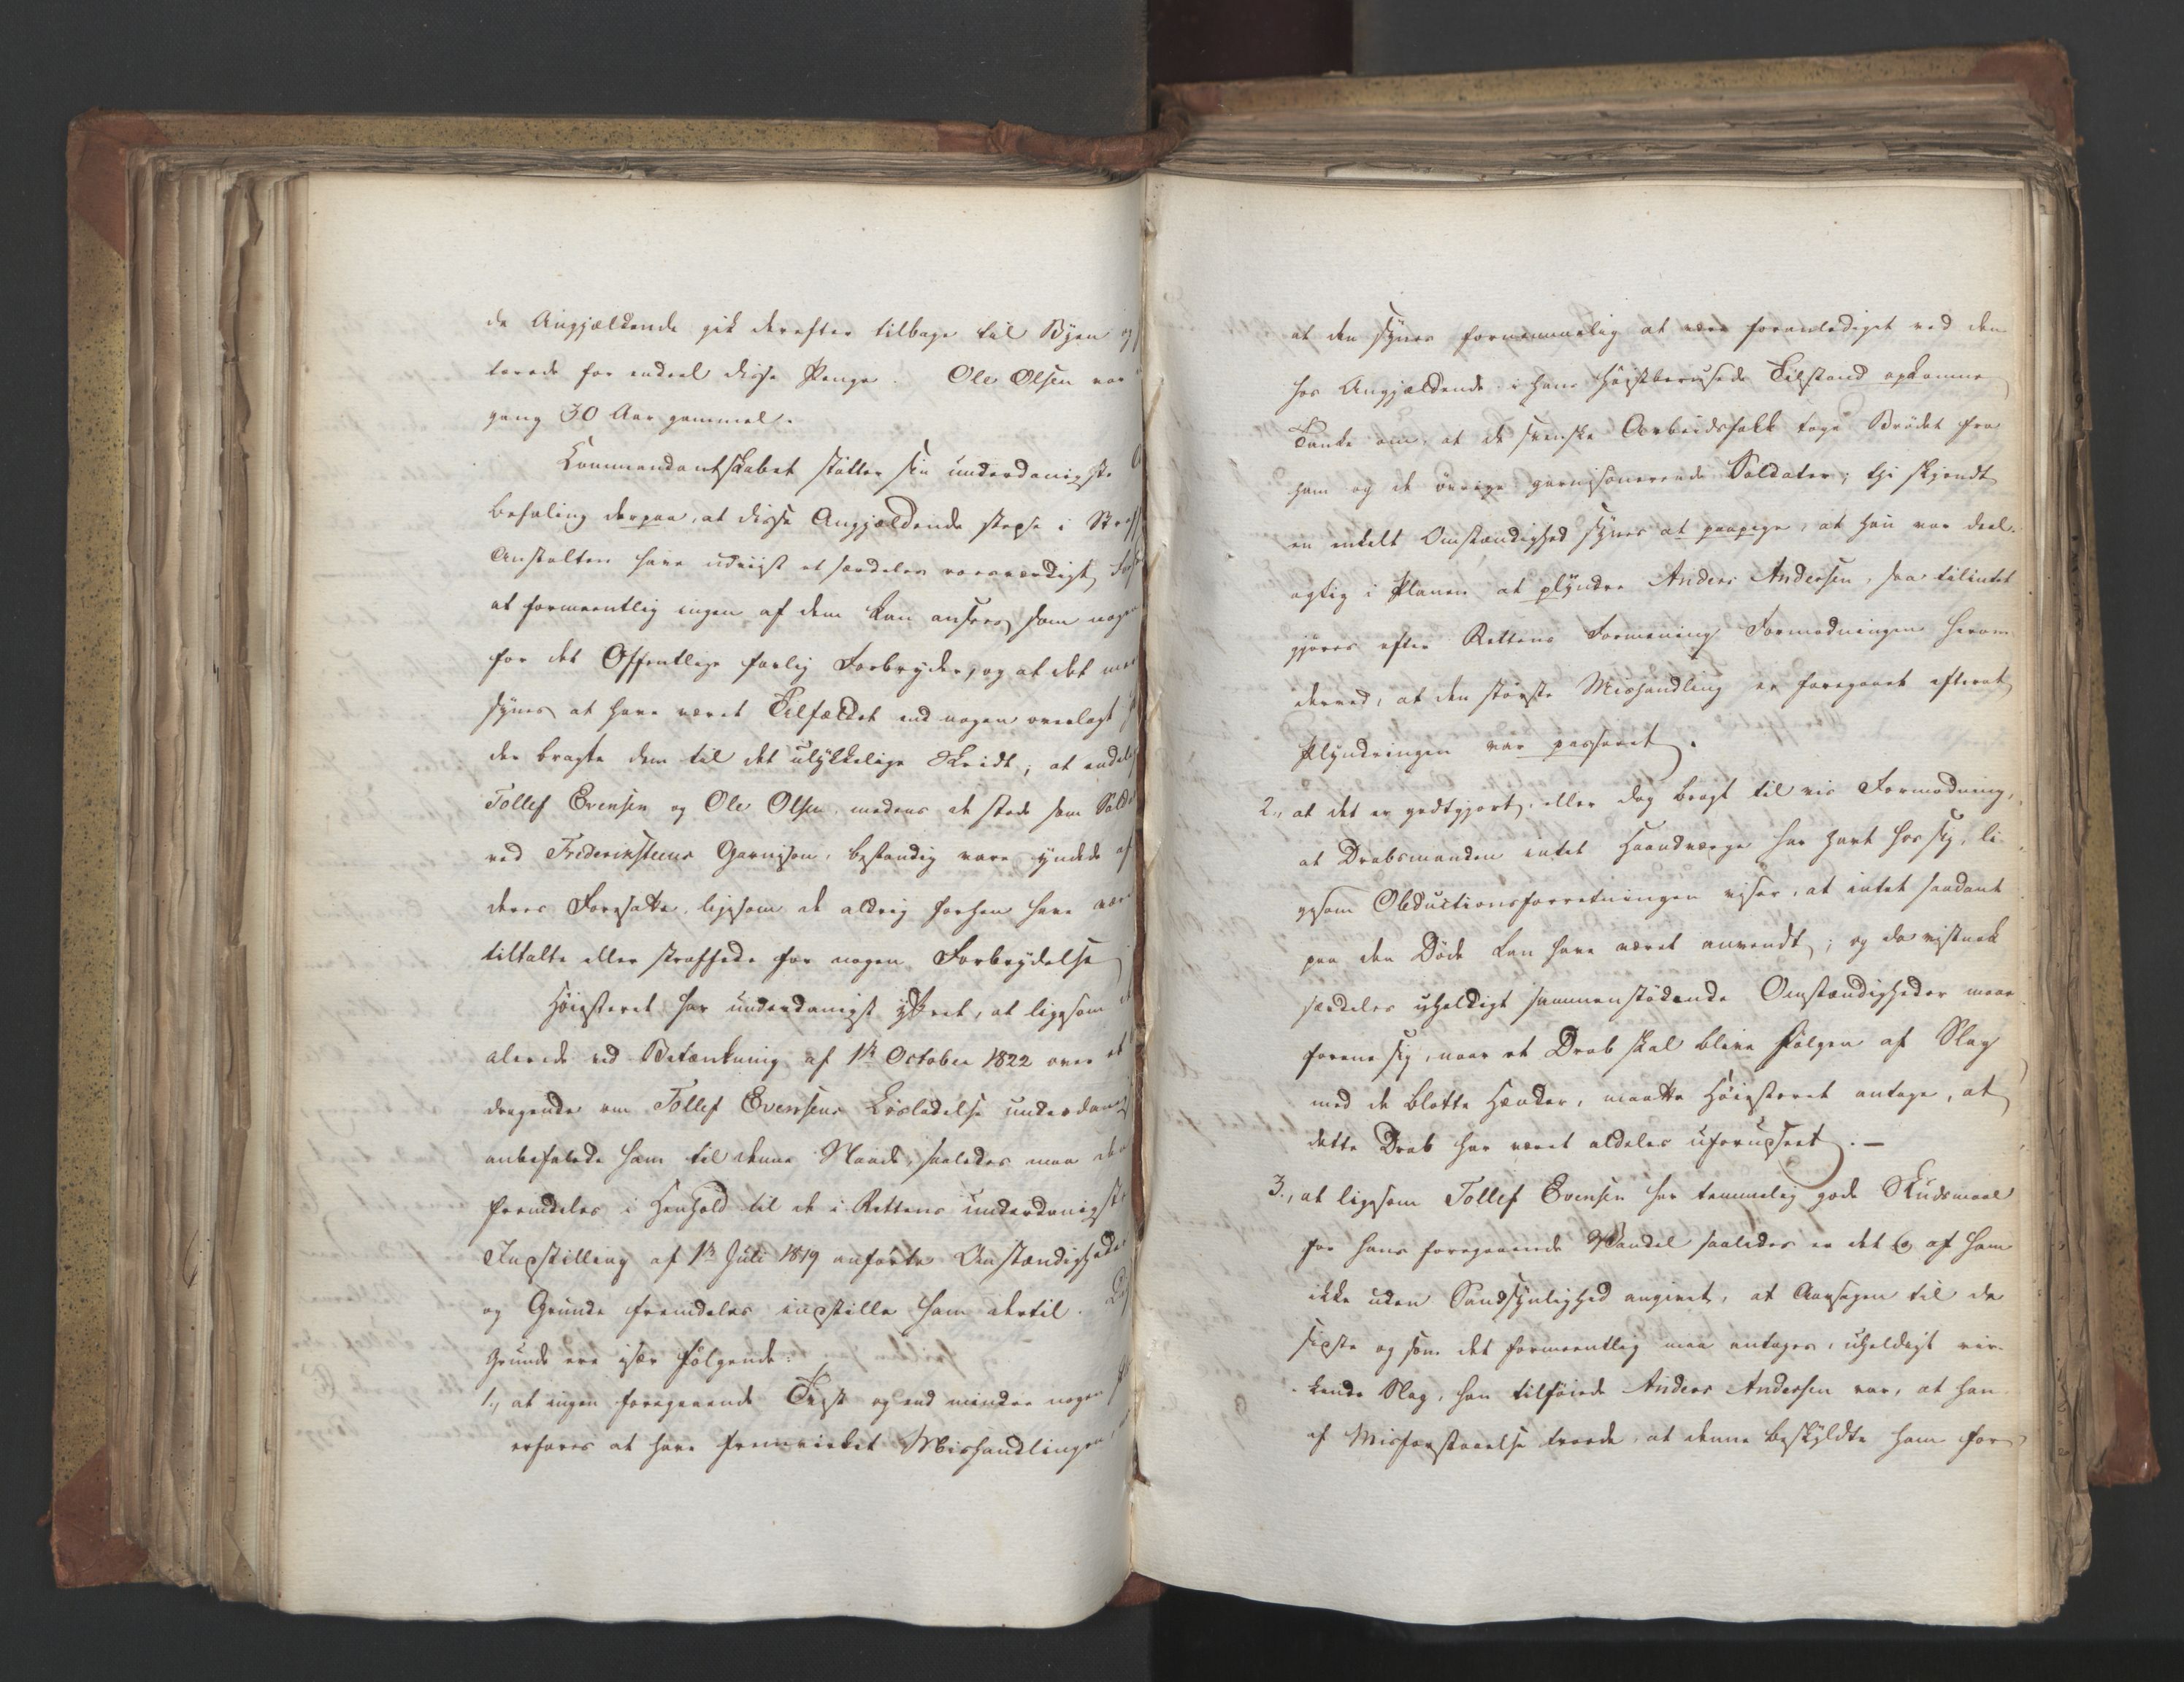 de Angjældende gik derefter tilbage til Byen og
tærede for endeel disse Penge. Ole Olsen var
gang 30 Aar gammel.
Kommandantskabet støtter sin underdanigste
Befaling derpaa, at disse Angjældende begge i Straff
Anstalten have udviist et særdeles roesværdigt
at formeentlig ingen af dem kan ansees som nogen
for det Offentlige farlig Forbryder, og at det
synes at have været Tilfældet end nogen overlagt
der bragte dem til det ulykkelige Skridt; at endelig
Tollef Evensen og Ole Olsen, medens de stode som
ved Frederikstens Garnison, bestandig vare yndede af
deres Foresatte, ligesom de aldrig forhen have
tiltalte eller straffede for nogen Forbrydelse
Høiesteret har underdanigst yttret, at ligesom
allerede ved Betænkning af 1ste October 1822 over
dragende om Tollef Evensens Løsladelse
anbefalede ham til denne Naade, saaledes maa
fremdeles i Henhold til de i Rettens underdanigste
Indstilling af 1ste Juli 1819 anførte Omstændigheder
og Grunde fremdeles indstille ham dertil.
Grunde ere især følgende:
1., at ingen foregaaende Tvist og end mindre nogen
erfares at have fremvirket Mishandlingen,
at den synes fornemmelig at være foranlediget ved den
hos Angjældende i hans høistberusede Tilstand opkomne
Tanke om, at de svenske Arbeidsfolk toge Brødet fra
ham og de øvrige garnisonerende Soldater; thi skjøndt
en enkelt Omstændighed synes at paapege, at han var deel-
agtig i Planen at plyndre Anders Andersen, saa tilintet
gjøres efter Rettens Formening Formodningen herom
derved, at den største Mishandling er foregaaet efterat
Plyndringen var passeret.
2., at det er godtgjort, eller dog bragt til vis Formodning,
at Drabsmanden intet Haandværge har havt hos sig, li-
gesom Obductionsforretningen viser, at intet saadant
paa den Døde kan have været anvendt; og da vistnok
særdeles uheldigt sammenstødende Omstændigheder maae
forene sig, naar et Drab skal blive Følgen af Slag
med de blotte Hænder, maatte Høiesteret antage, at
dette Drab har været aldeles uforudseet. —
3., at ligesom Tollef Evensen har temmelig gode Skudsmaal
for hans foregaaende Vandel saaledes er det af ham
ikke uden Sandsynlighed angivet, at Aarsagen til de
sidste og som det formeentlig maa antages, uheldigt vir-
kende Slag, han tilføiede Anders Andersen var, at han
af Misforstaaelse troede, at denne beskyldte ham for